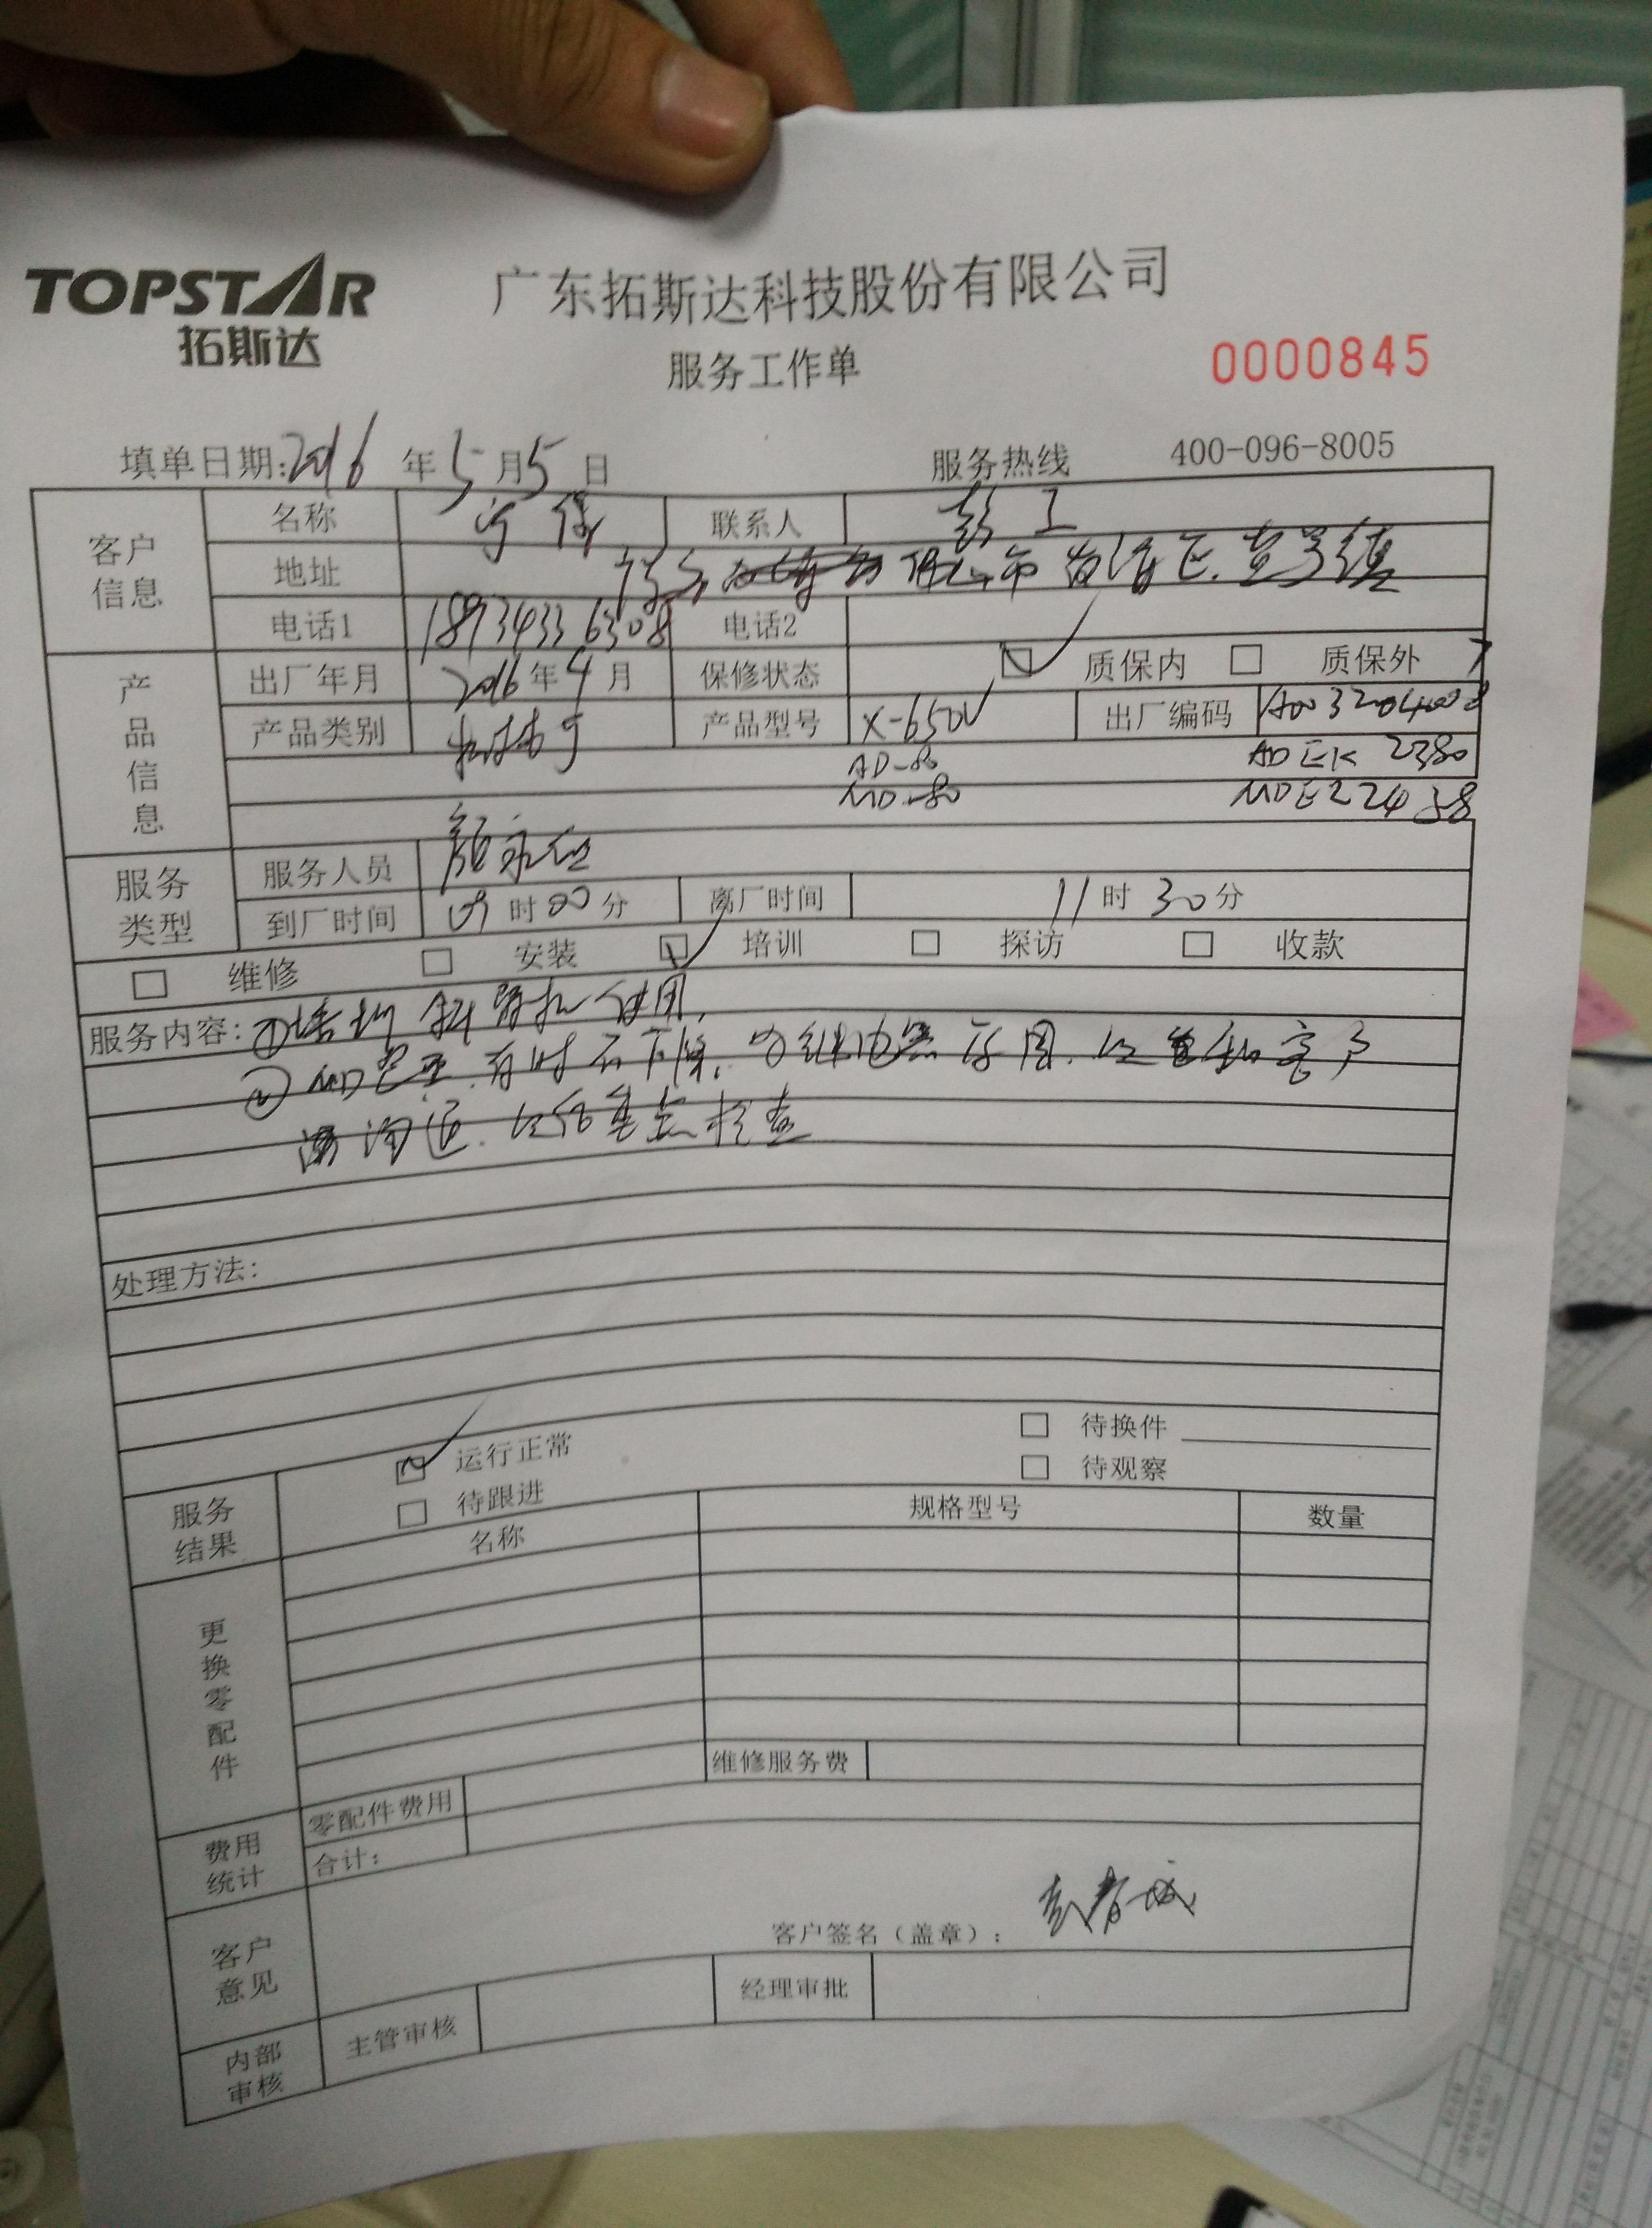 TOPSTAR
拓斯达
广东拓斯达科技股份有限公司
服务工作单
0000845
填单日期:2016年5月5日 服务热线 400-096-8005
客户信息 名称 联系人 彭工
地址 市 区
电话1 18934336308 电话2
产品信息 出厂年月 2016年4月 保修状态 质保内 质保外
产品类别 机械手 产品型号 X-650V 出厂编码
AD-80 ADEK 2380
MD-80 MDE22438
服务类型 服务人员 颜
到厂时间 09时00分 离厂时间 11时30分
维修 安装 培训 探访 收款
服务内容:①培训 使用,
② 有时不下降, 继电器 客户
沟通, 重点检查
处理方法:
服务结果 运行正常 待换件
待跟进 待观察
更换零配件 名称 规格型号 数量
维修服务费
费用统计 零配件费用
合计:
客户意见 客户签名(盖章): 彭春城
内部审核 主管审核 经理审批